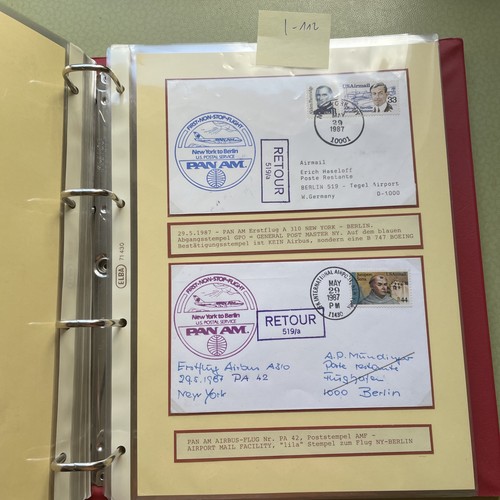 1-112
FIRST-NON-STOP-FLIGHT
New York to Berlin
U.S. POSTAL SERVICE
PAN AM
RETOUR
519/a
USAirmail
33
MAY
29
1987
10001
Airmail
Erich Haseloff
Poste Restante
BERLIN 519 - Tegel Airport
D-1000
W.Germany
29.5.1987 - PAN AM Erstflug A 310 NEW YORK - BERLIN.
Abgangsstempel GPO = GENERAL POST MASTER NY. Auf dem blauen
Bestätigungsstempel ist KEIN Airbus, sondern eine B 747 BOEING
ELBA 71 430
FIRST-NON-STOP-FLIGHT
New York to Berlin
U.S. POSTAL SERVICE
PAN AM
RETOUR
519/a
INTERNATIONAL AIRPORT
MAY
29
1987
PM
11430
44
Erstflug Airbus A310
29.5.1987 PA 42
New York
A.P. Mündiner
Poste restante
Flughafen
1000 Berlin
PAN AM AIRBUS-FLUG Nr. PA 42, Poststempel AMF -
AIRPORT MAIL FACILITY, "lila" Stempel zum Flug NY-BERLIN